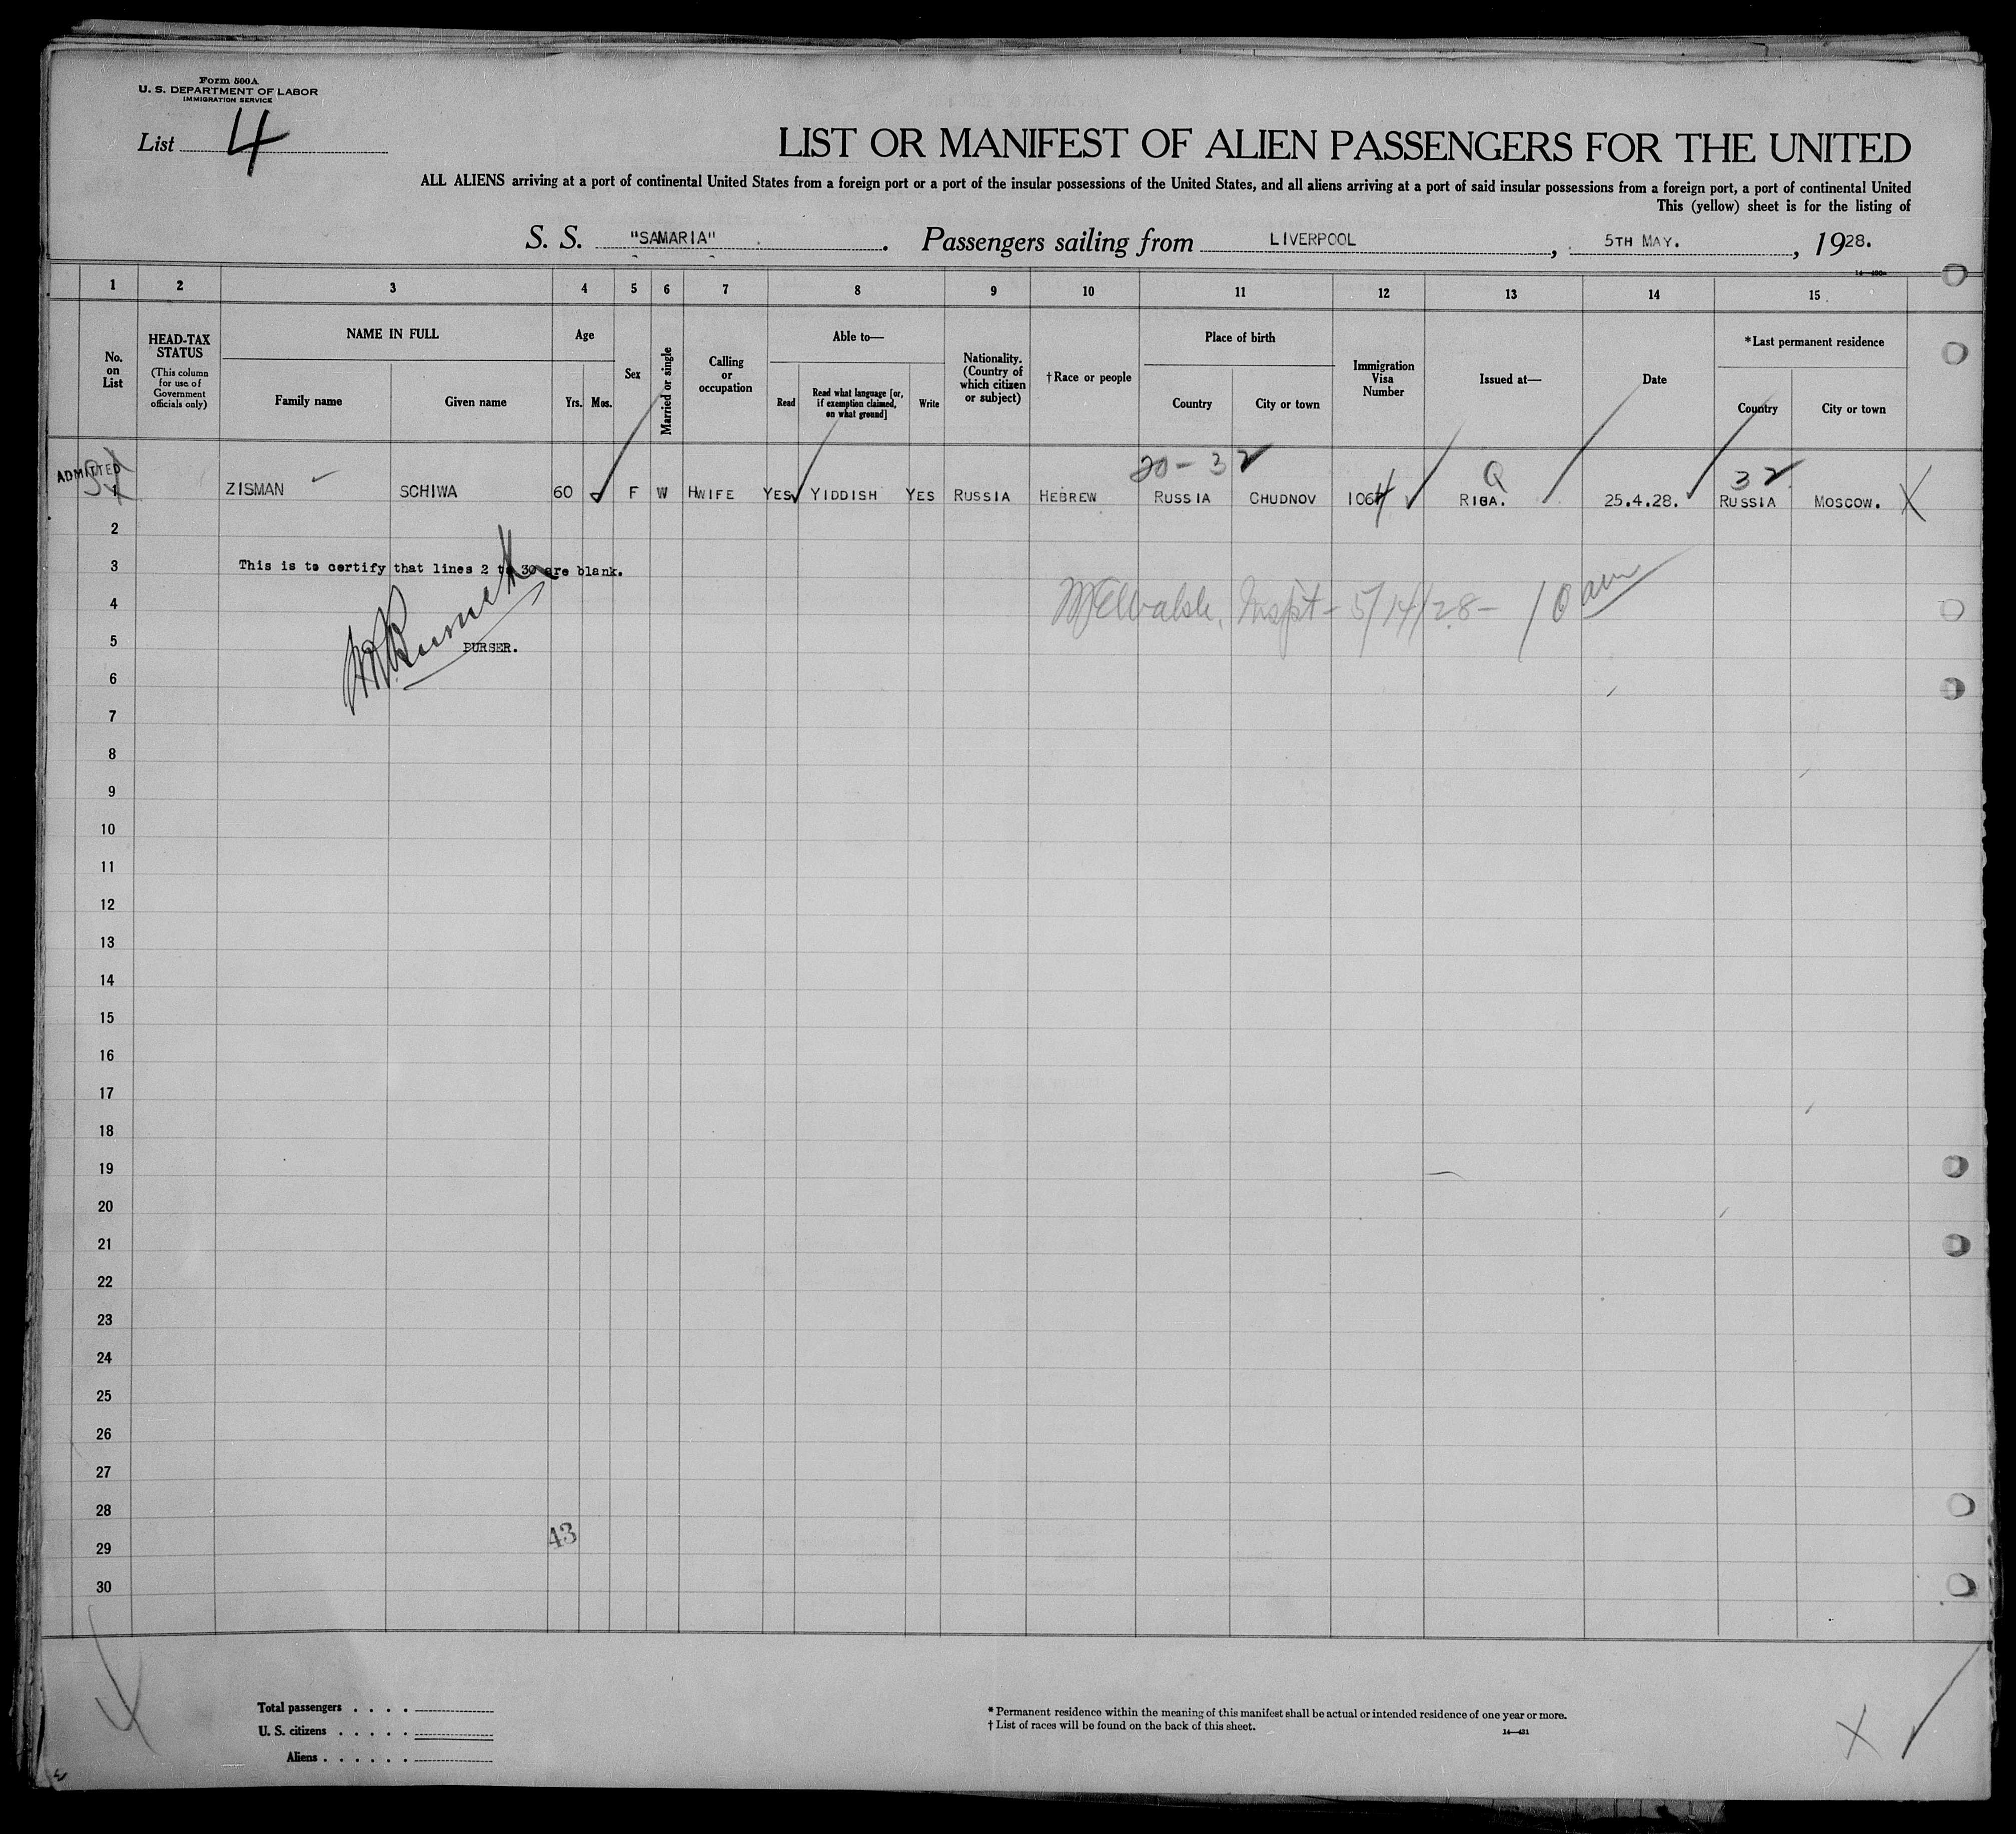 Form 500A
U. S. DEPARTMENT OF LABOR
IMMIGRATION SERVICE
List 4
LIST OR MANIFEST OF ALIEN PASSENGERS FOR THE UNITED
ALL ALIENS arriving at a port of continental United States from a foreign port or a port of the insular possessions of the United States, and all aliens arriving at a port of said insular possessions from a foreign port, a port of continental United
This (yellow) sheet is for the listing of
S. S. "SAMARIA". Passengers sailing from LIVERPOOL, 5TH MAY., 1928.
1 2 3 4 5 6 7 8 9 10 11 12 13 14 15
No. on List
HEAD-TAX STATUS
(This column for use of Government officials only)
NAME IN FULL
Family name Given name
Age
Yrs. Mos.
Sex
Married or single
Calling or occupation
Able to—
Read Read what language [or, if exemption claimed, on what ground] Write
Nationality. (Country of which citizen or subject)
†Race or people
Place of birth
Country City or town
Immigration Visa Number
Issued at—
Date
*Last permanent residence
Country City or town
20-32 Q 32
ADMITTED
1 ZISMAN SCHIWA 60 F W HWIFE YES YIDDISH YES RUSSIA HEBREW RUSSIA CHUDNOV 1064 RIGA. 25.4.28. RUSSIA MOSCOW. X
2
3 This is to certify that lines 2 to 30 are blank.
4 Inspt - 5/14/28 - 10 am
5 PURSER.
6
7
8
9
10
11
12
13
14
15
16
17
18
19
20
21
22
23
24
25
26
27
28
43
29
30
Total passengers . . . .
U. S. citizens . . . . .
Aliens . . . . . .
*Permanent residence within the meaning of this manifest shall be actual or intended residence of one year or more.
†List of races will be found on the back of this sheet.
14—431
X